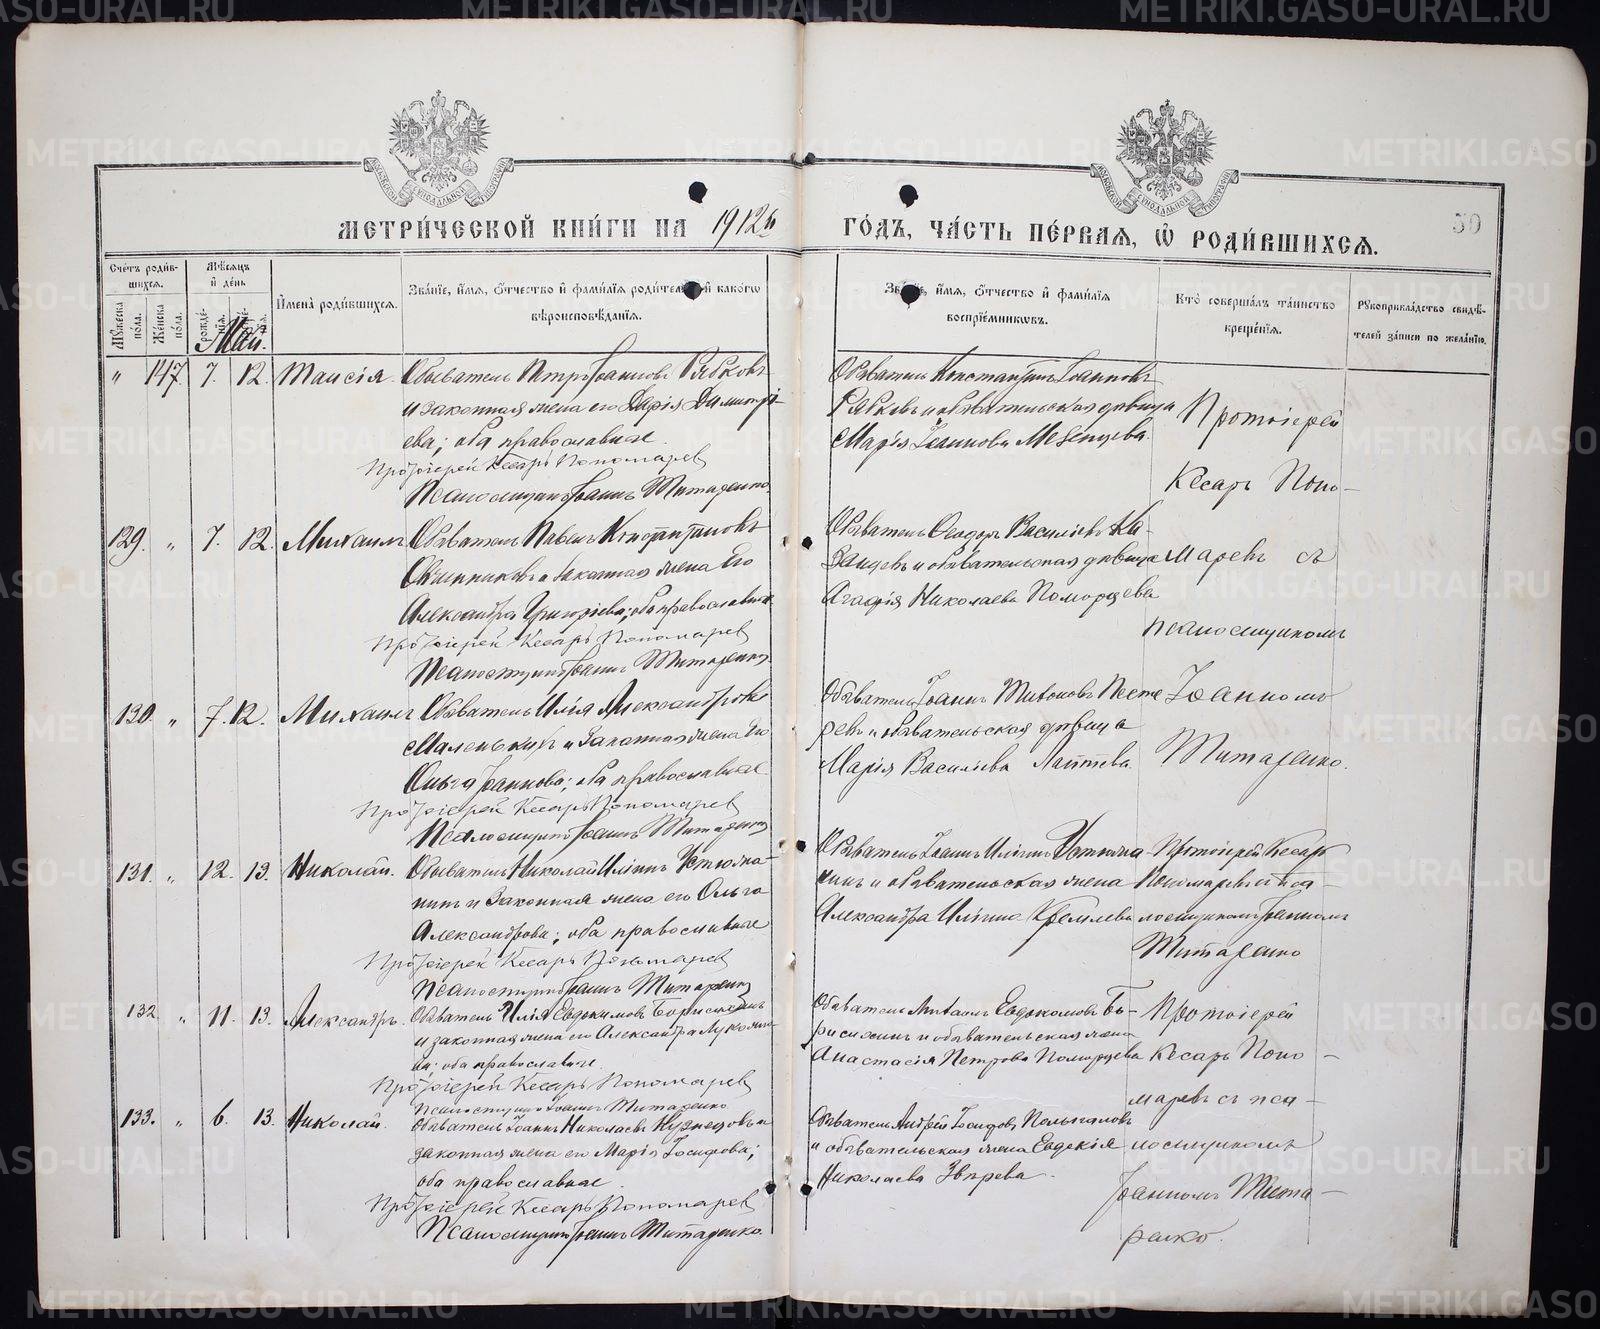 МЕТРИ́ЧЕСКОЙ КНИ́ГИ НА 1912й
ГО́ДЪ, ЧА́СТЬ ПЕ́РВАЯ, Ѡ РОДИ́ВШИХСЯ.
50
Сче́тъ роди́в-
шихся.
Мѣ́сяцъ
и день
Муже́ска по́ла.
Же́нска по́ла.
рожде́-
нія.
Май.
И́мена̀ роди́вшихся.
Зва́нїе, и́мя, ѻ́тчество и фами́лїя роди́телей и како́гѡ
вѣроисповѣ́данїя.
Зва́нїе, и́мя, ѻ́тчество и фами́лїя
воспрїе́мникѡвъ.
Кто̀ соверша́лъ та́инство
креще́нїя.
Рꙋкоприкла́дство свидѣ́-
телей за́писи по жела́нїю.
" 147 7. 12. Таисія. Обыватель Петръ Іоанновъ Рябковъ
и законная жена его Дарія Димитрі-
ева; оба православные.
Протоіерей Кесарь Пономарев
Псаломщикъ Іоаннъ Титаренко
Обыватель Константинъ Іоанновъ
Рябковъ и обывательская дѣвица
Марія Іоаннова Мезенцева.
Протоіерей
Кесарь Поно-
129. " 7. 12. Михаилъ Обыватель Павелъ Константиновъ
Овчинниковъ и законная жена Его
Александра Григоріева; оба православные
Протоіерей Кесарь Пономарев
Псаломщикъ Іоаннъ Титаренко
Обыватель Ѳеодоръ Василіевъ Ка-
занцевъ и обывательская дѣвица
Агафія Николаева Поморцева
маревъ съ
псаломщикомъ
130. " 7. 12. Михаилъ Обыватель Илія Александровъ
Маленькихъ и Законная жена Его
Ольга Іоаннова; оба православные
Протоіерей Кесарь Пономарев
Псаломщикъ Іоаннъ Титаренко
Обыватель Іоаннъ Тихоновъ Песте
ревъ и обывательская дѣвица
Марія Василіева Лаптева.
Іоанномъ
Титаренко.
131. " 12. 13. Николай. Обыватель Николай Иліинъ Устюжа-
нинъ и Законная жена его Ольга
Александрова; оба православные
Протоіерей Кесарь Пономарев
Псаломщикъ Іоаннъ Титаренко
Обыватель Іоаннъ Иліинъ Устюжа-
нинъ и обывательская жена
Александра Иліина Кремлева
Протоіерей Кесарь
Пономаревъ съ пса-
ломщикомъ Іоанномъ
Титаренко
132 " 11. 13. Александръ. Обыватель Илія Евдокимовъ Борисихинъ
и законная жена его Александра Лукояно-
ва; оба православные.
Протоіерей Кесарь Пономарев
Псаломщикъ Іоаннъ Титаренко
Обыватель Михаилъ Евдокимовъ Бо-
рисихинъ и обывательская жена
Анастасія Петрова Поморцева
Протоіерей
Кесарь Поно-
маревъ съ пса-
133. " 6. 13. Николай. Обыватель Іоаннъ Николаевъ Кузнецовъ и
законная жена его Марія Іосифова;
оба православные.
Протоіерей Кесарь Пономарев
Псаломщикъ Іоаннъ Титаренко.
Обыватель Андрей Іосифовъ
и обывательская жена Евдокія
Николаева Звѣрева.
ломщикомъ
Іоанномъ Тита-
ренко.